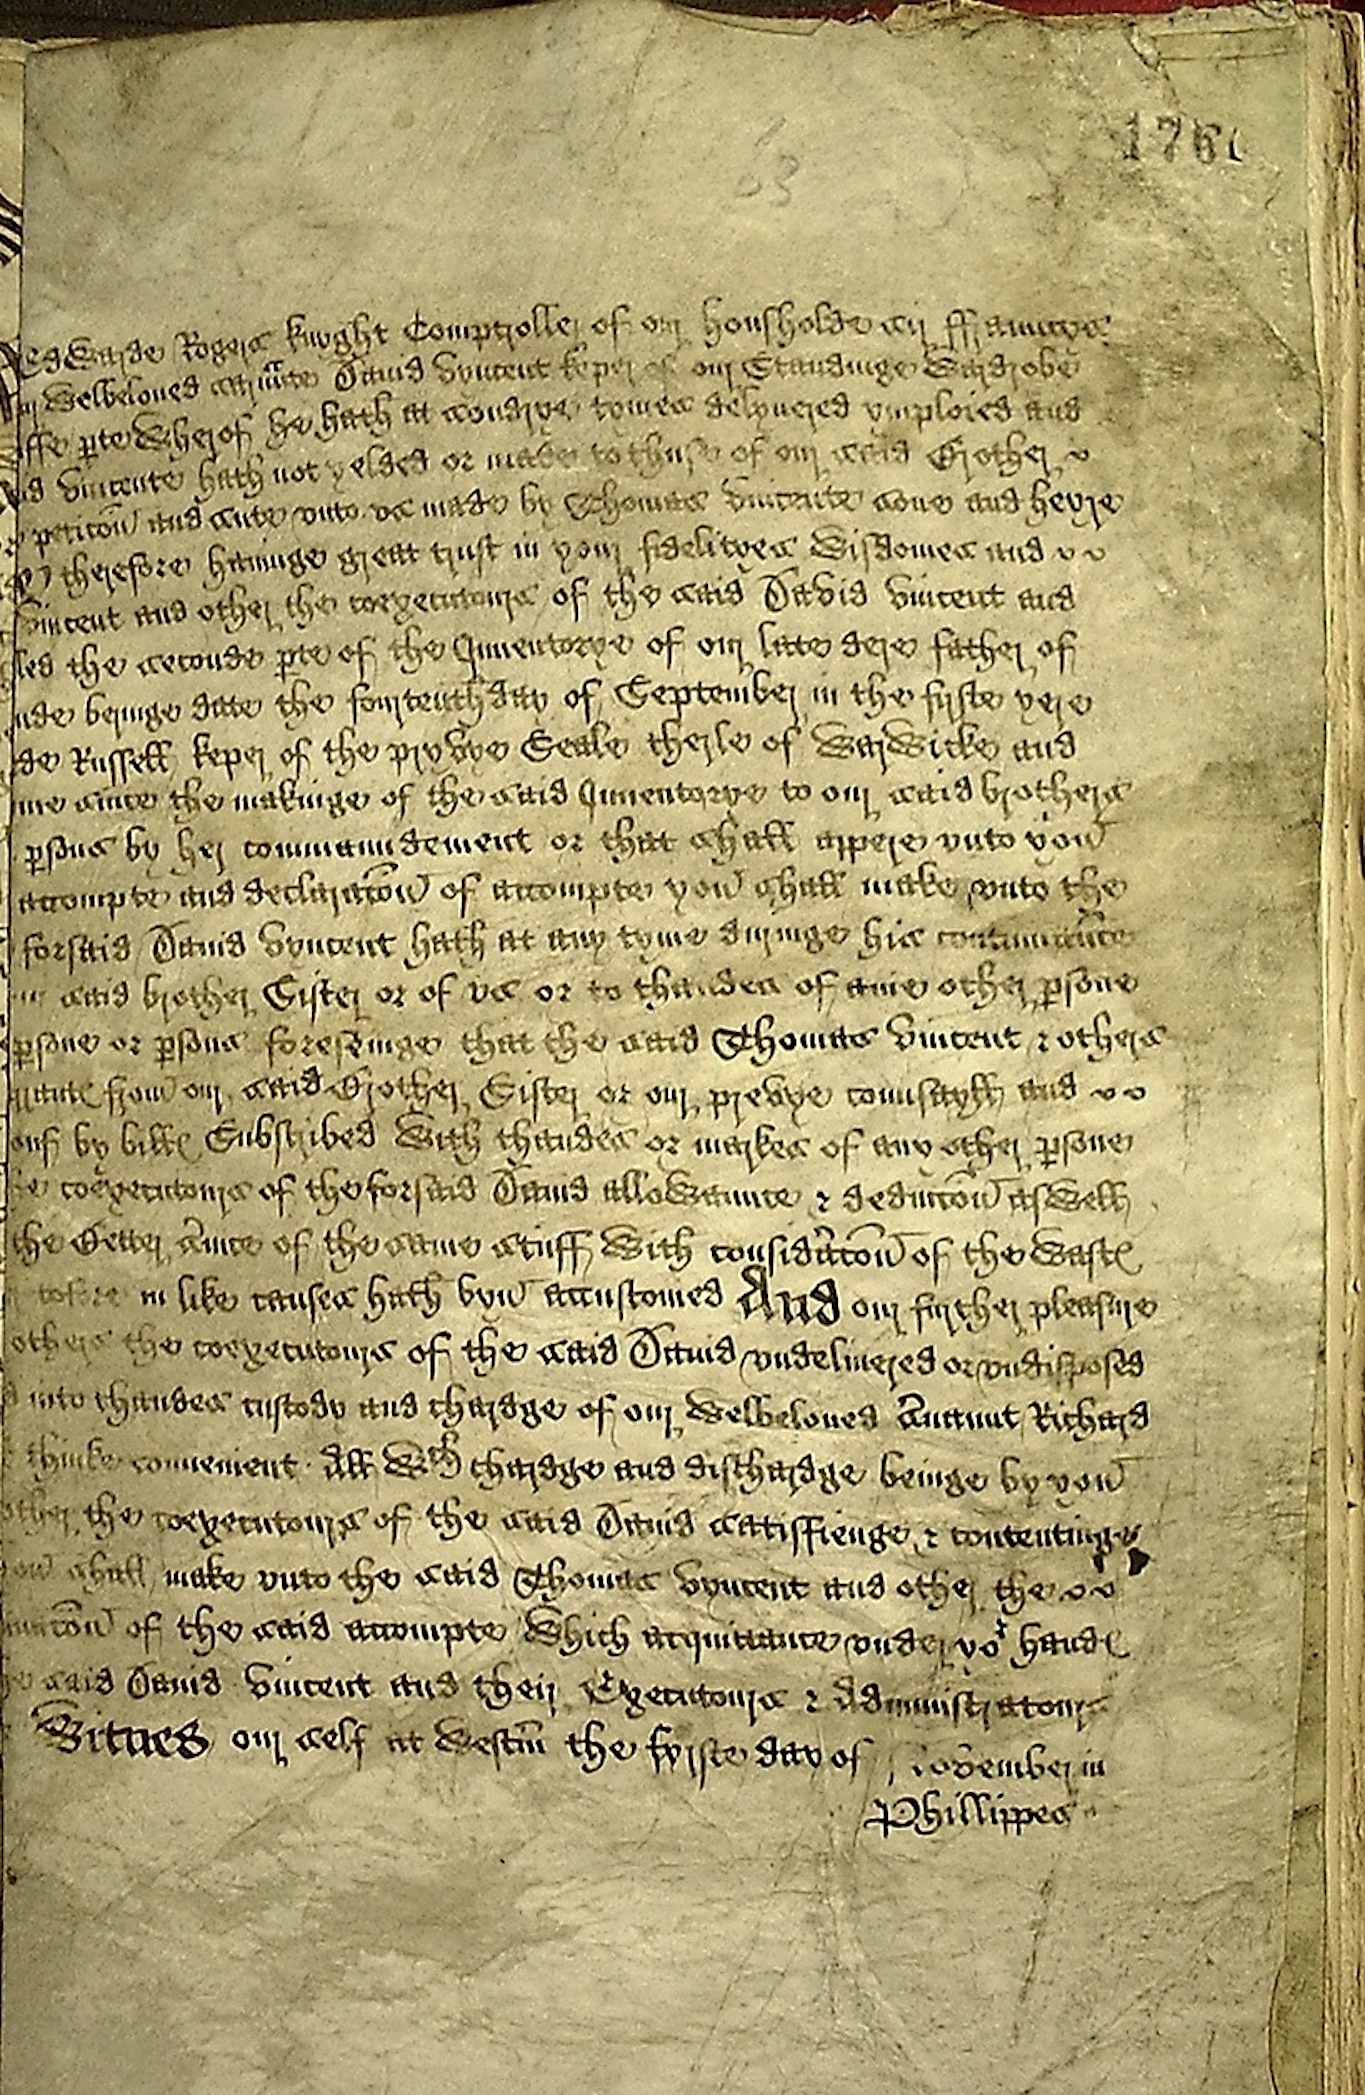 176
63
Edwarde Rogers knyght Comptroller of our housholde sir ffrauncys
welbeloved David Vyncent keper of our Standinge Wardrobe
pte wherof he hath at sondrye tymes delyuered ymploied and
Vincente hath not yelded or made to thuse of our said Brother
peticōn and sute vnto vs made by Thomas Vincente sone and heyre
therefore havinge great trust in your fidelityes Wisdomes and
Vincent and other the coexecutours of the said David Vincent and
led the seconde pte of the Inventorye of our late dere father of
beringe date the fourtenth day of September in the firste yere
de Russell keper of the pryvye Seale therle of Warwicke and
me since the makinge of the said Inventorye to our said brothers
psons by her commaundement or that shall appere vnto you
accompte and declaracōn of accompte you shall make vnto the
forsaid David Vyncent hath at any tyme duringe his contynuāce
said brother Sister or of vs or to thandes of anie other psone
psone or psons foreseinge that the said Thomas Vincent & others
from our said Brother Sister or our prevye counsayll and
by bill Subscribed with thandes or markes of any other psone
coexecutours of the forsaid David allowaunce & deducōn aswell
the Better sv̄ice of the same stuff with considerācōn of the wast
tofore in like causes hath byn accustomed And our further pleasure
others the coexecutours of the said David vndelivered or vndisposed
into thandes custody and chardge of our welbeloved s̄vaunt Richard
thinke convenient All wᵗʰ chardge and dischardge beinge by you
other the coexecutours of the said David satisfienge & contentinge
shall make vnto the said Thomas Vyncent and other the
of the said accompte Which acquittance vnder yoʳ hand
said David Vincent and their Executours & Administratours
Witnes our self at Westm̄ the fyrste day of November in
Phillippes